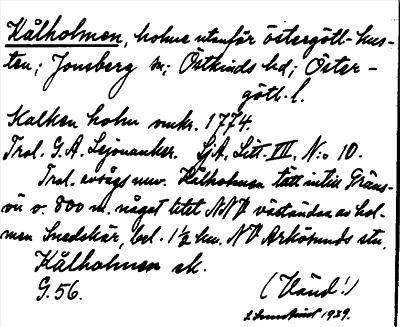 Kålholmen, holme utanför östergötl. kus-
ten; Jonsberg sn; Östkinds hd; Öster-
götl. l.
Kalken holm omkr. 1774.
Trol. G.A. Lejonanker. SjA, Litt. VII, N:o 10.
Trol. avsågs nuv. Kålholmen tätt intill Gräns-
ön o. 800 m. något litet NNV väständan av hol-
men Snedskär, bel. 1½ km. NV Arkösunds stn.
Kålholmen ek.
G. 56.
(Vänd!)
1939.